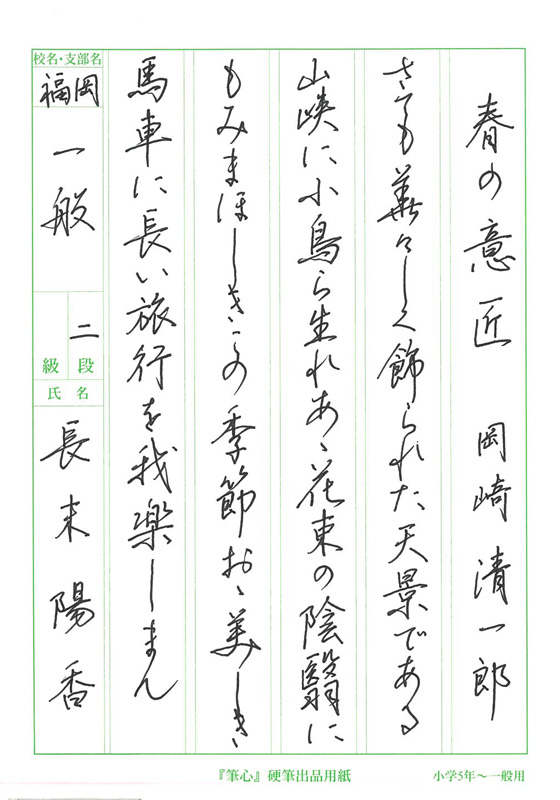 春の意匠 岡崎清一郎
さても華々しく飾られた天景である
山峡に小鳥ら生れあゝ花束の陰翳に
もみまほしきこの季節おゝ美しき
馬車に長い旅行を我楽しまん
校名・支部名
福岡
一般
二
級 段
氏名
長末陽香
『筆心』硬筆出品用紙
小学5年〜一般用